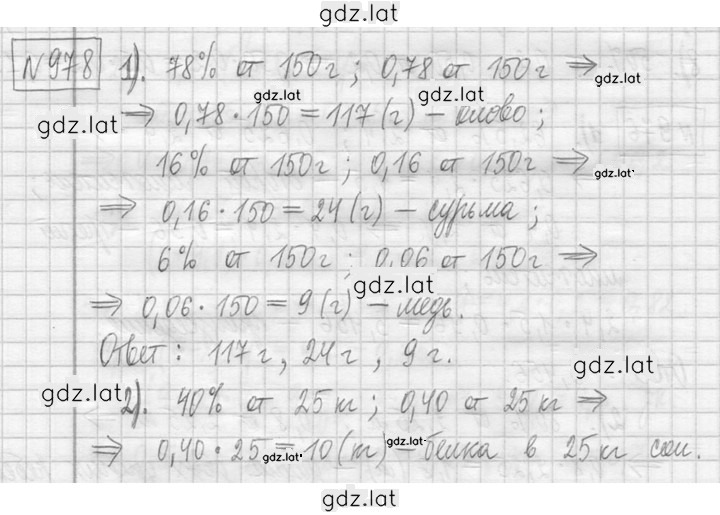 gdz.lat
№978 1). 78% от 150г; 0,78 от 150г ⇒
gdz.lat
gdz.lat
gdz.lat
⇒ 0,78·150=117(г) – олово;
gdz.lat
16% от 150г; 0,16 от 150г ⇒
gdz.lat
⇒ 0,16·150=24(г) – сурьма;
6% от 150г; 0,06 от 150г ⇒
gdz.lat
⇒ 0,06·150=9(г) – медь.
Ответ: 117г, 24г, 9г.
gdz.lat
gdz.lat
2). 40% от 25кг; 0,40 от 25кг ⇒
⇒ 0,40·25=10(кг) – белка в 25кг сои.
gdz.lat
gdz.lat
gdz.lat